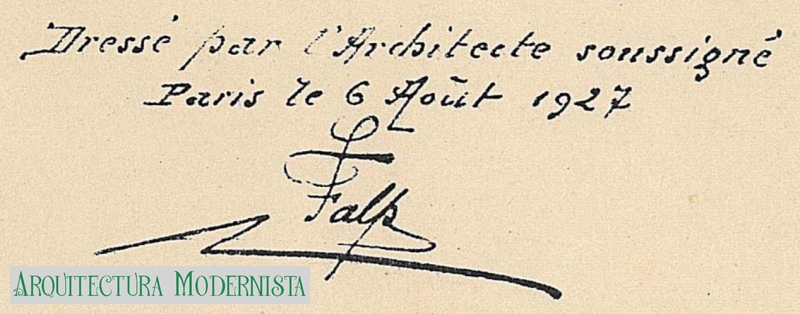 Dressé par l'Architecte soussigné
Paris le 6 Août 1927
Falp
ARQUITECTURA MODERNISTA